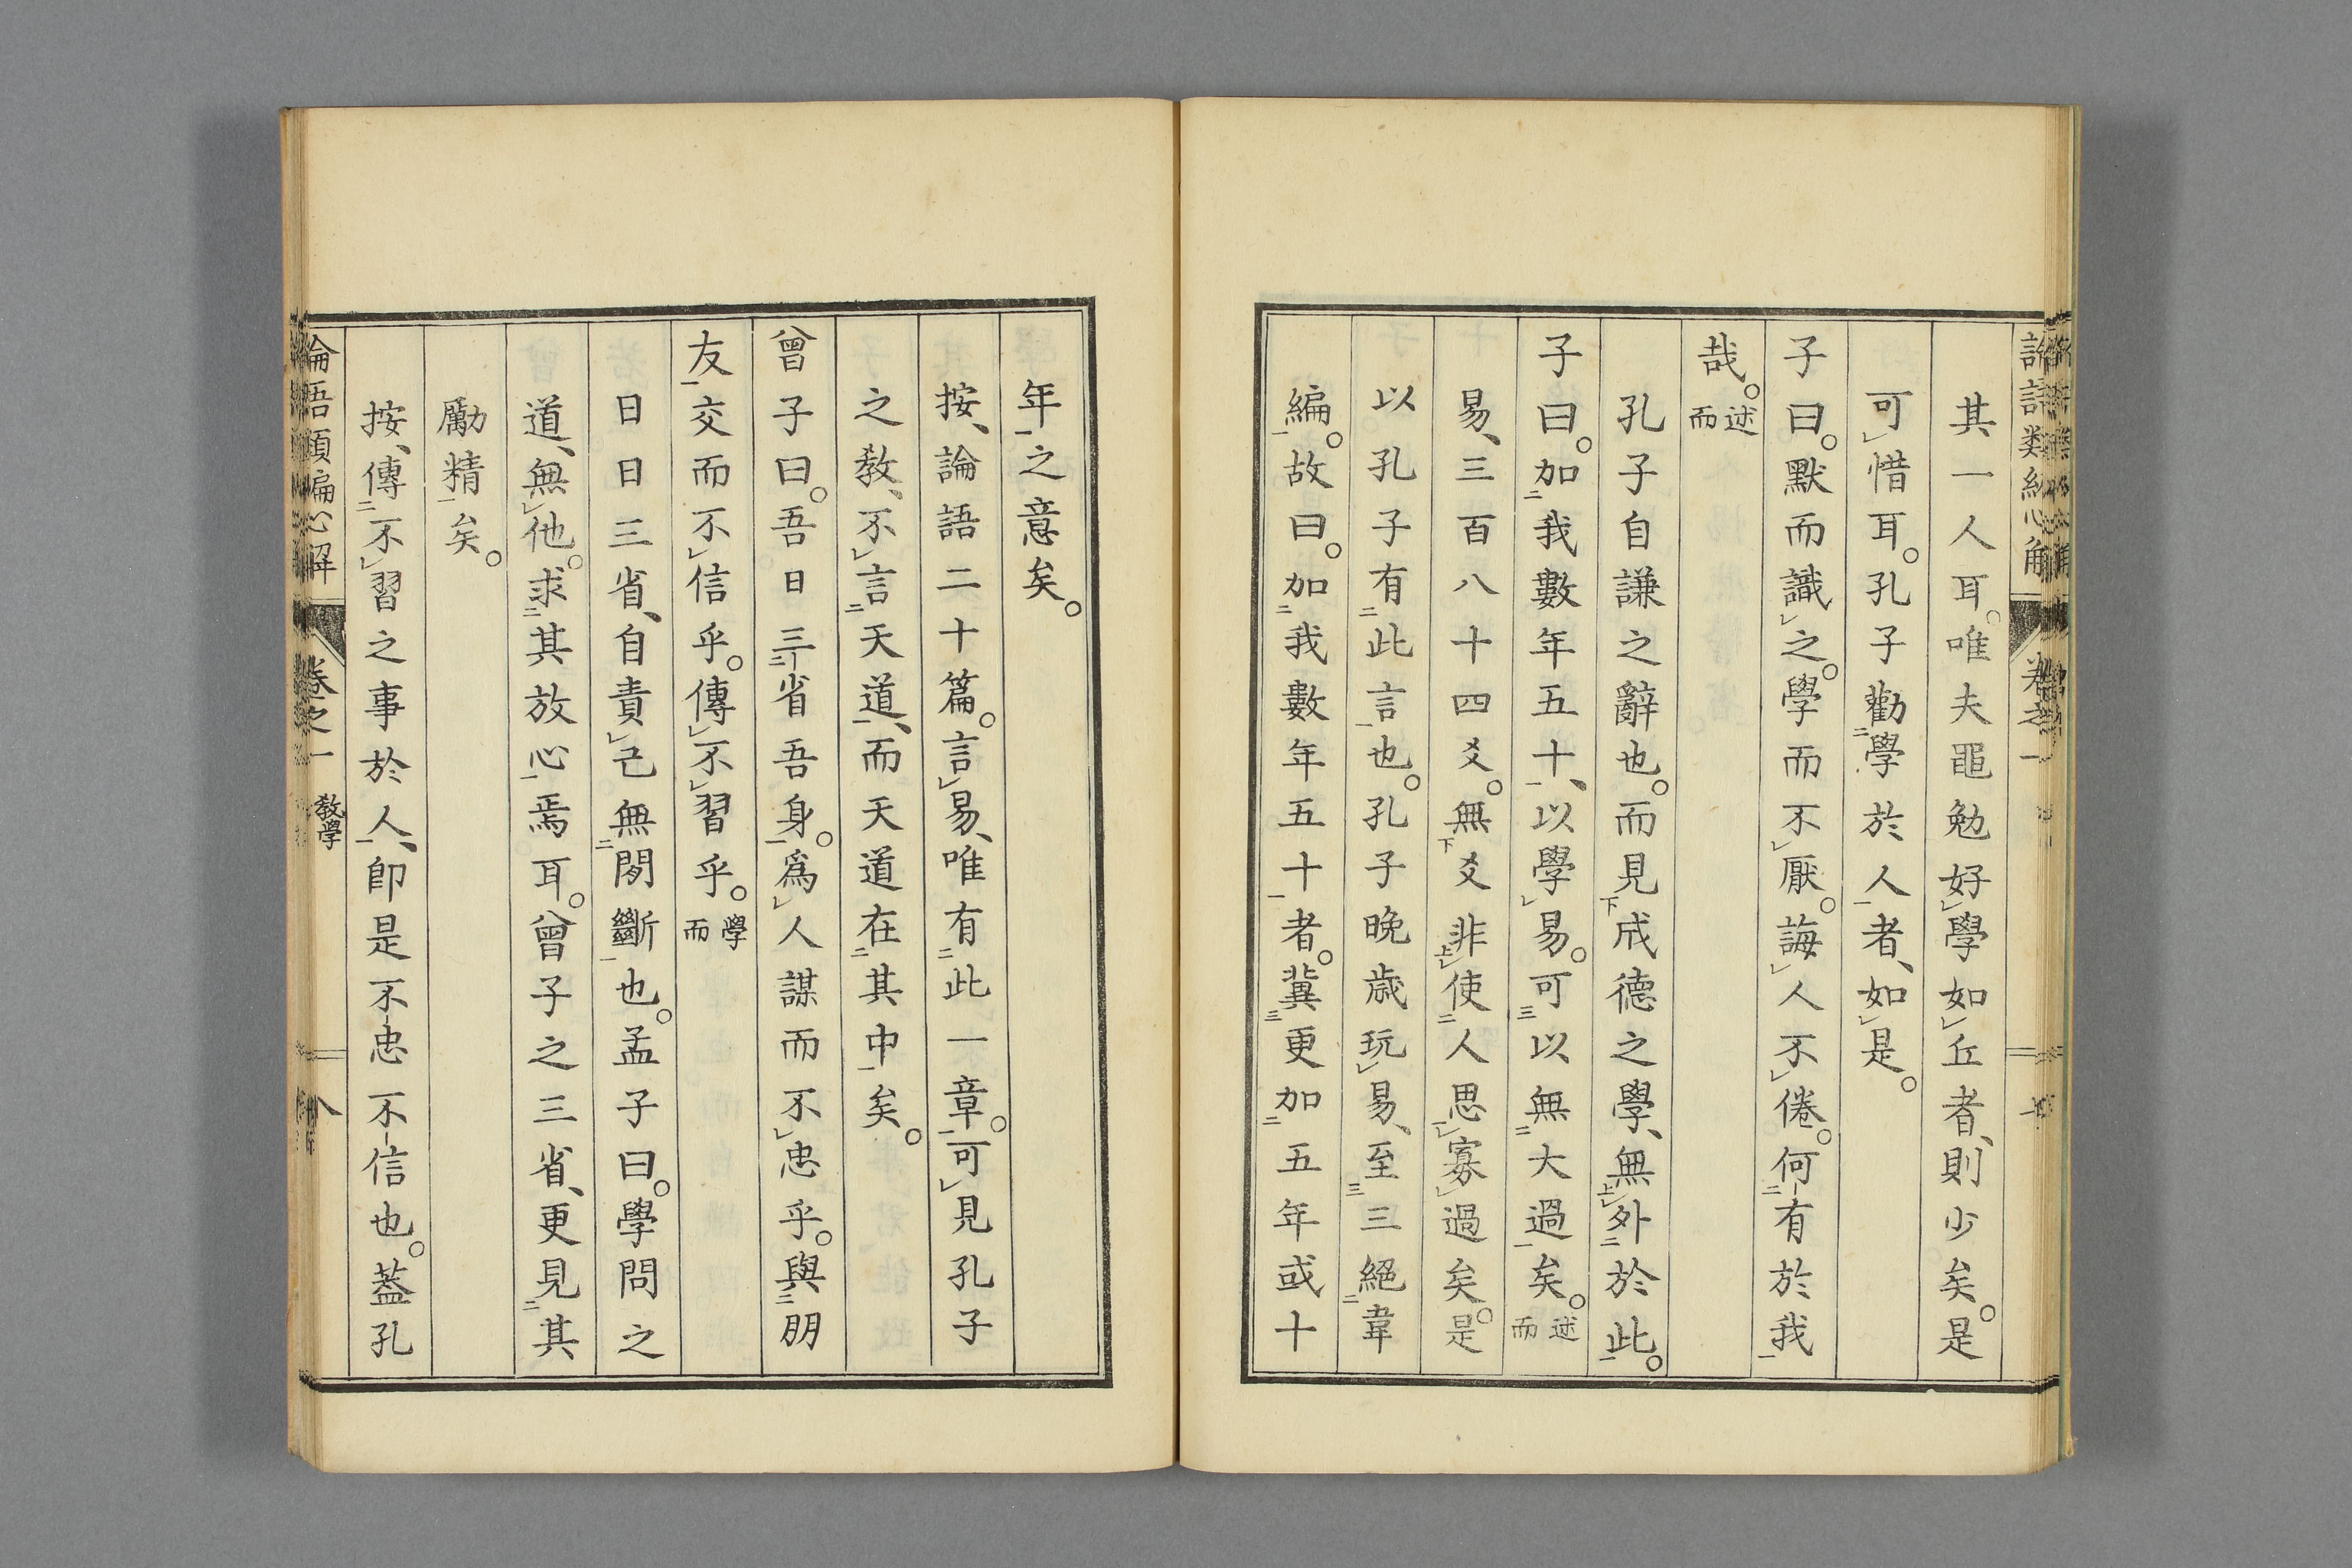 其一人耳。唯夫黽勉好學如丘者、則少矣。是
可惜耳。孔子勸學於人者、如是。
子曰。默而識之。學而不厭。誨人不倦。何有於我
哉。述而
孔子自謙之辭也。而見成德之學、無外於此。
子曰。加我數年五十、以學易。可以無大過矣。述而
易、三百八十四爻。無爻非使人思寡過矣。是
以孔子有此言也。孔子晚歳玩易、至三絕韋
編。故曰。加我數年五十者。冀更加五年或十
年之意矣。
按、論語二十篇。言易、唯有此一章。可見孔子
之敎、不言天道、而天道在其中矣。
曾子曰。吾日三省吾身。爲人謀而不忠乎。與朋
友交而不信乎。傳不習乎。學而
日日三省、自責己無間斷也。孟子曰。學問之
道、無他。求其放心焉耳。曾子之三省、更見其
勵精矣。
按、傳不習之事於人、卽是不忠不信也。蓋孔
論語類編心解 卷之一 敎學 八